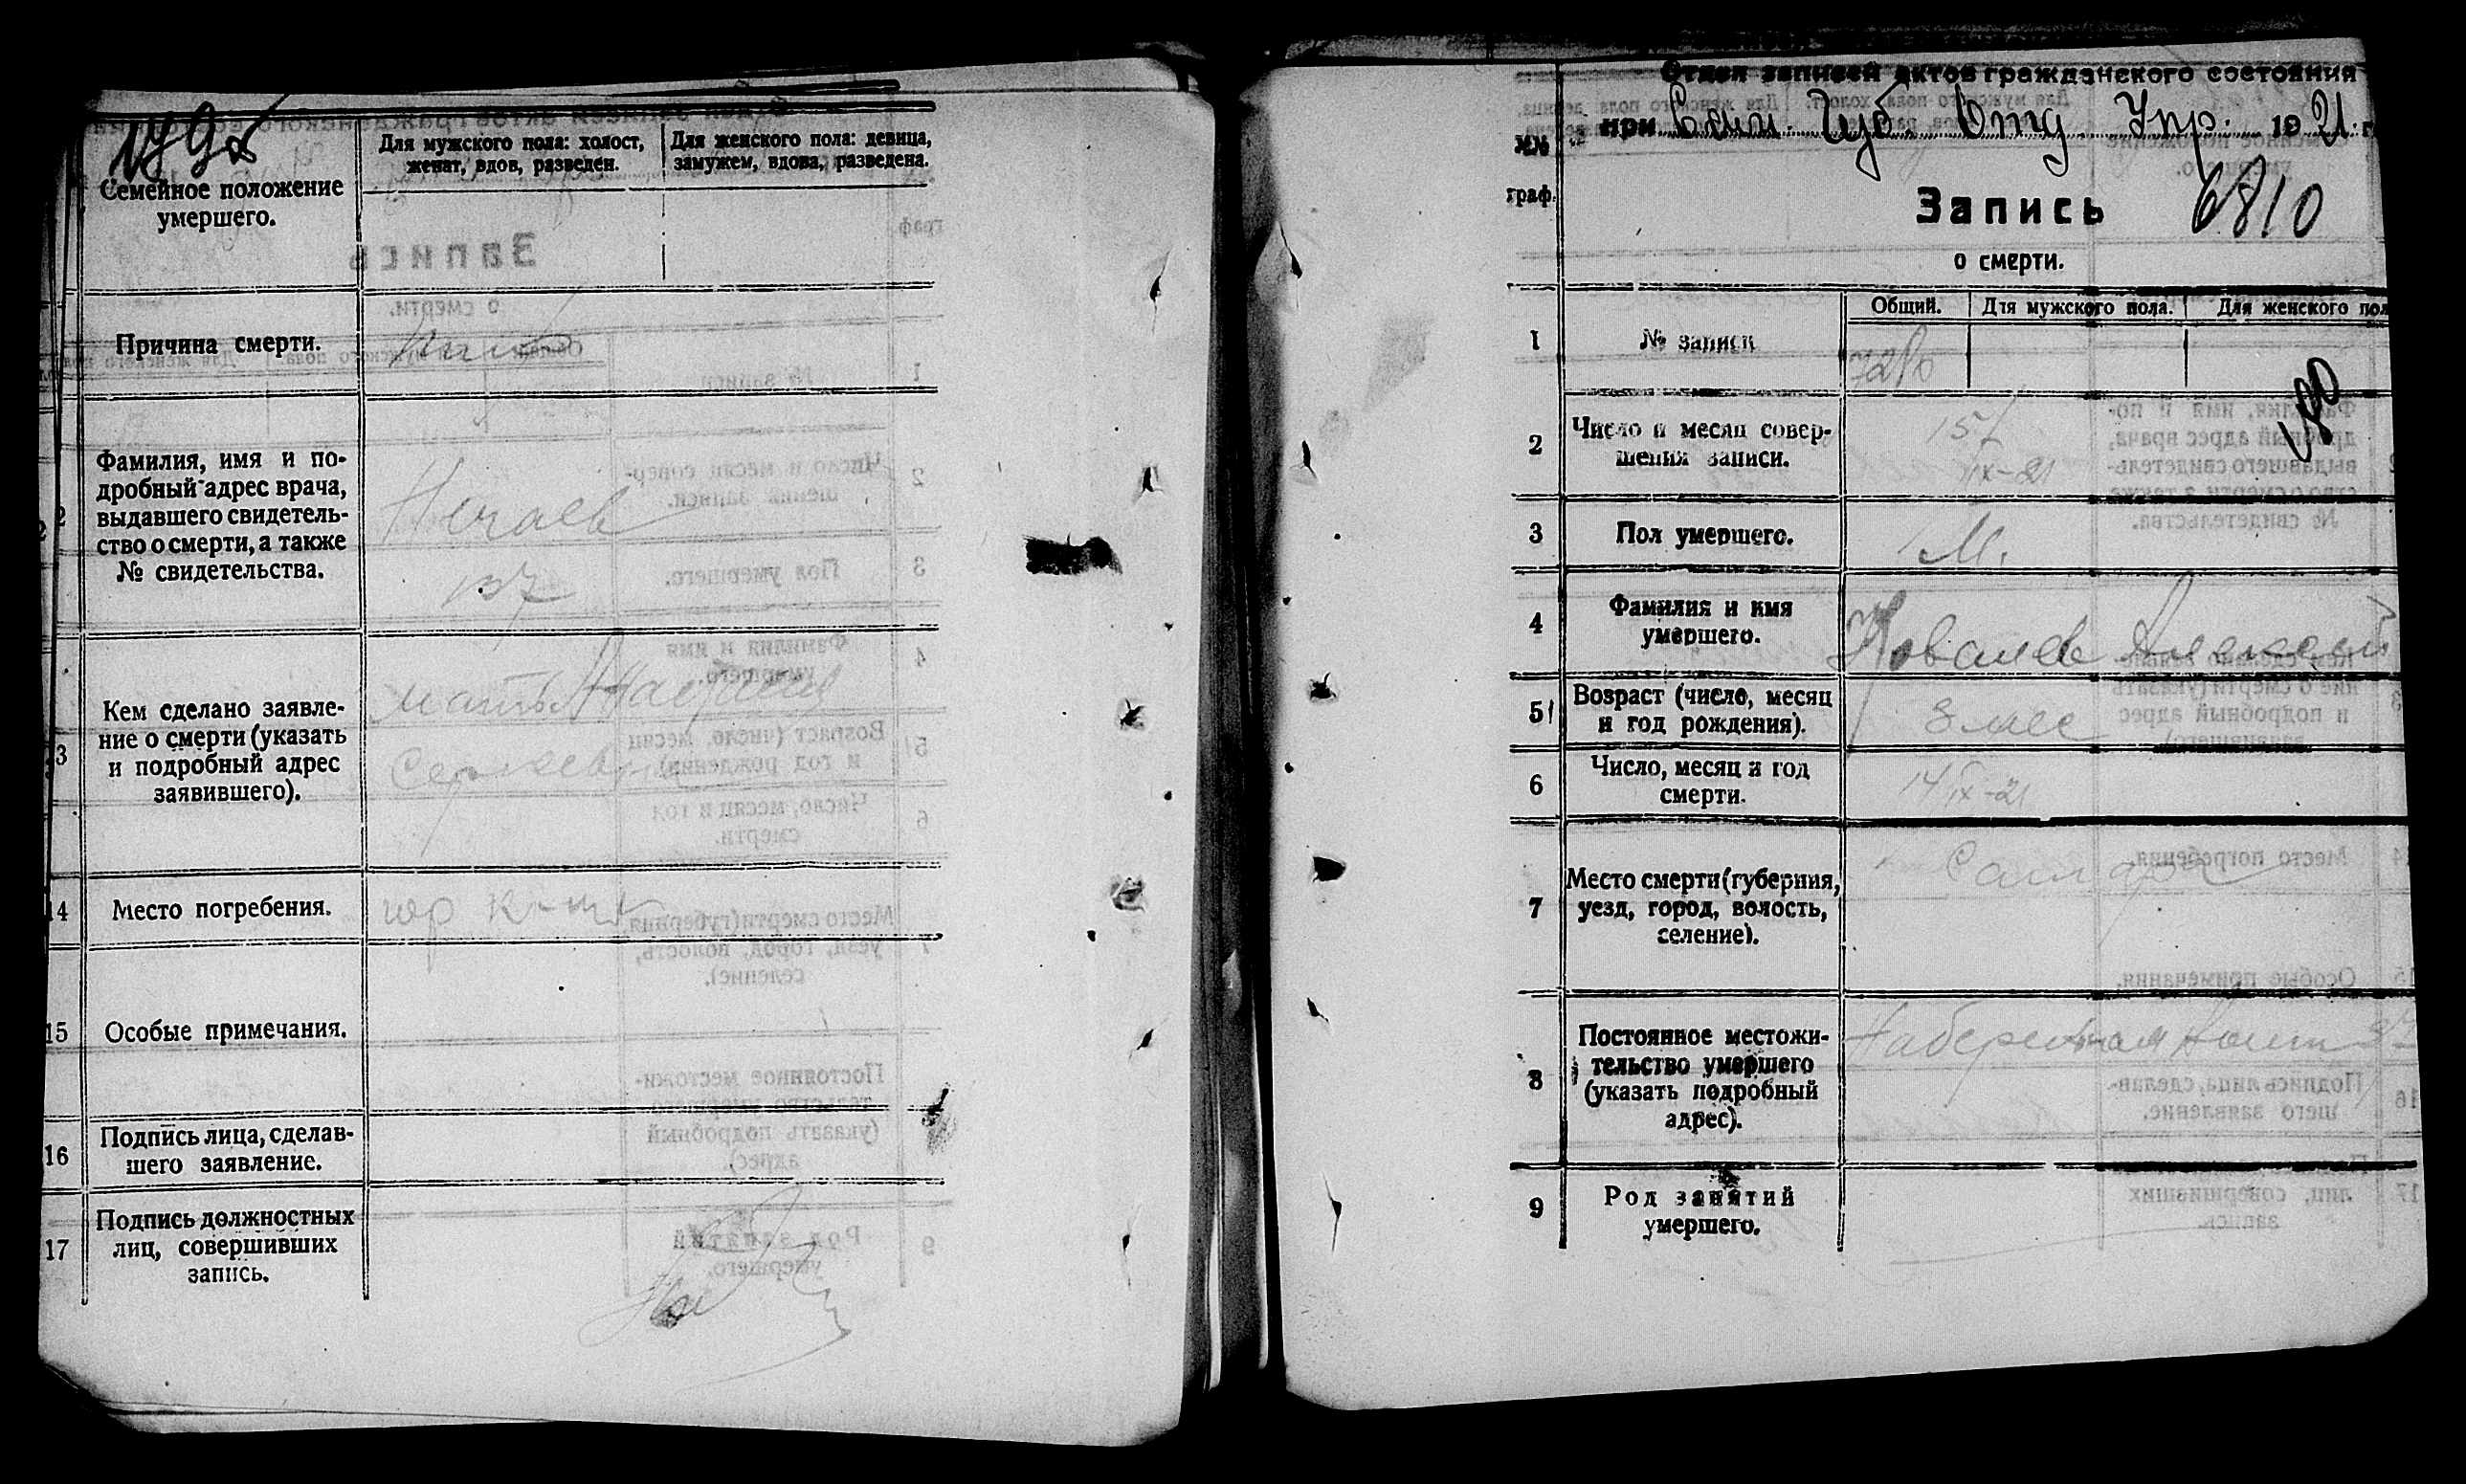 Для мужского пола: холост,
женат, вдов, разведен.
Для женского пола: девица,
замужем, вдова, разведена.
Семейное положение
умершего.
Причина смерти.
Фамилия, имя и по-
дробный адрес врача,
выдавшего свидетель-
ство о смерти, а также
№ свидетельства.
Нечаев
157
3
Кем сделано заявле-
ние о смерти (указать
и подробный адрес
заявившего).
мать
14
Место погребения.
гор
15
Особые примечания.
16
Подпись лица, сделав-
шего заявление.
17
Подпись должностных
лиц, совершивших
запись.
Отдел записей актов гражданского состояния
при Сам. Губ. Отд Упр. 1921 г
№№
граф.
Запись
6810
о смерти.
Общий.
Для мужского пола.
Для женского пол
1
№ записи
2
Число и месяц совер-
шения записи.
15/
IX-21
3
Пол умершего.
М.
4
Фамилия и имя
умершего.
Ковалев Алексей
5
Возраст (число, месяц
и год рождения).
8 мес
6
Число, месяц и год
смерти.
14 IX-21
7
Место смерти (губерния,
уезд, город, волость,
селение).
Самара
8
Постоянное местожи-
тельство умершего
(указать подробный
адрес).
Набережная
9
Род занятий
умершего.